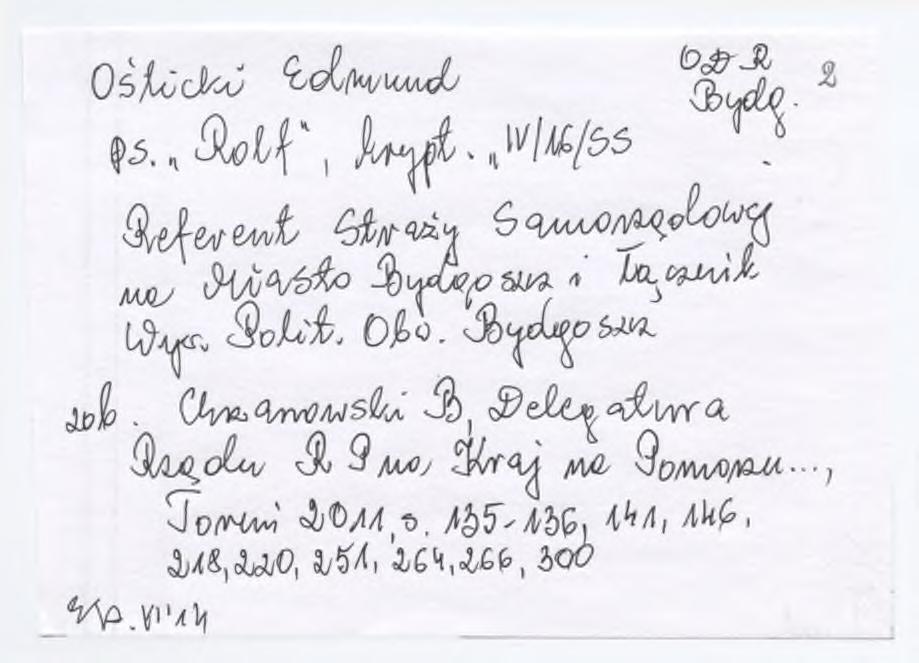 Ośticki Edmund
ODR
Bydg. 2
ps. „Rolf", krypt. „IV/16/SS
Referent Straży Samorządowej
na Miasto Bydgoszcz i Łącznik
Wyw. Polit. Obw. Bydgoszcz
zob. Chrzanowski B, Delegatura
Rządu RP na Kraj na Pomorzu...,
Toruń 2011, s. 135-136, 141, 146,
218, 220, 251, 264, 266, 300
VI'14